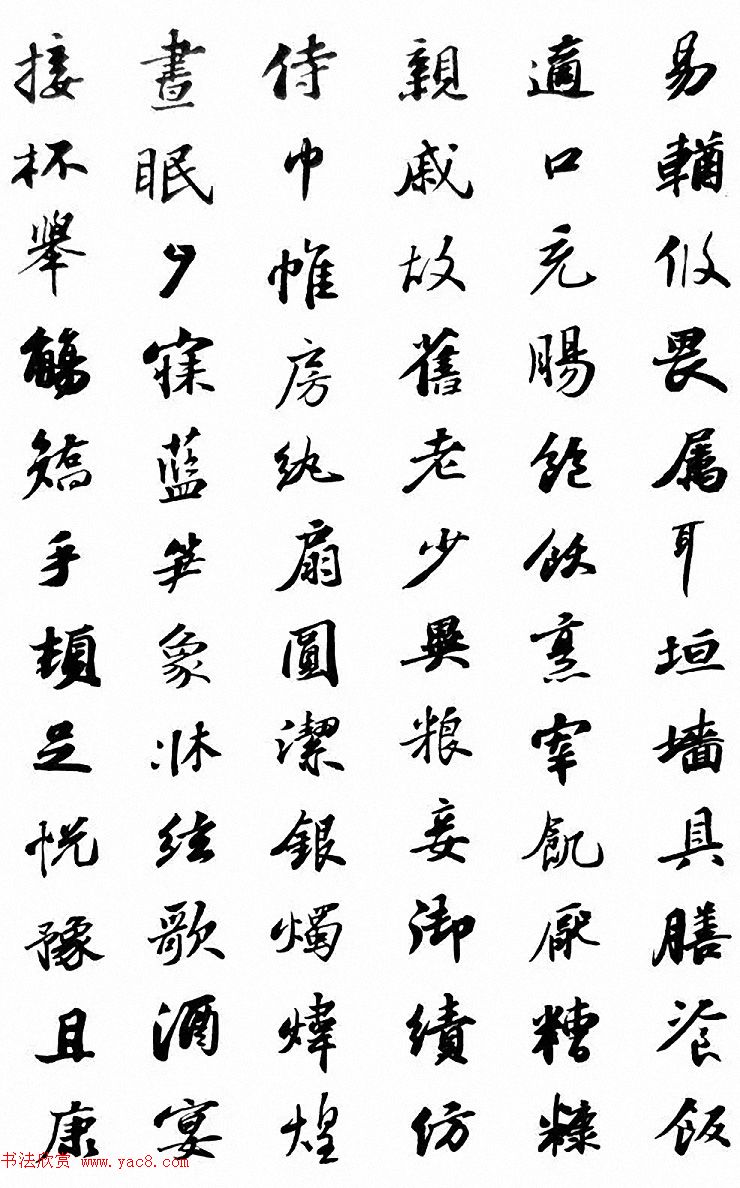 易輶攸畏属耳垣墙具膳飡飯
適口充腸飽飫烹宰飢厭糟糠
親戚故舊老少異粮妾御績紡
侍巾帷房紈扇圓潔銀燭煒煌
晝眠夕寐藍笋象牀絃歌酒宴
接杯舉觴矯手頓足悅豫且康
书法欣赏 www.yac8.com